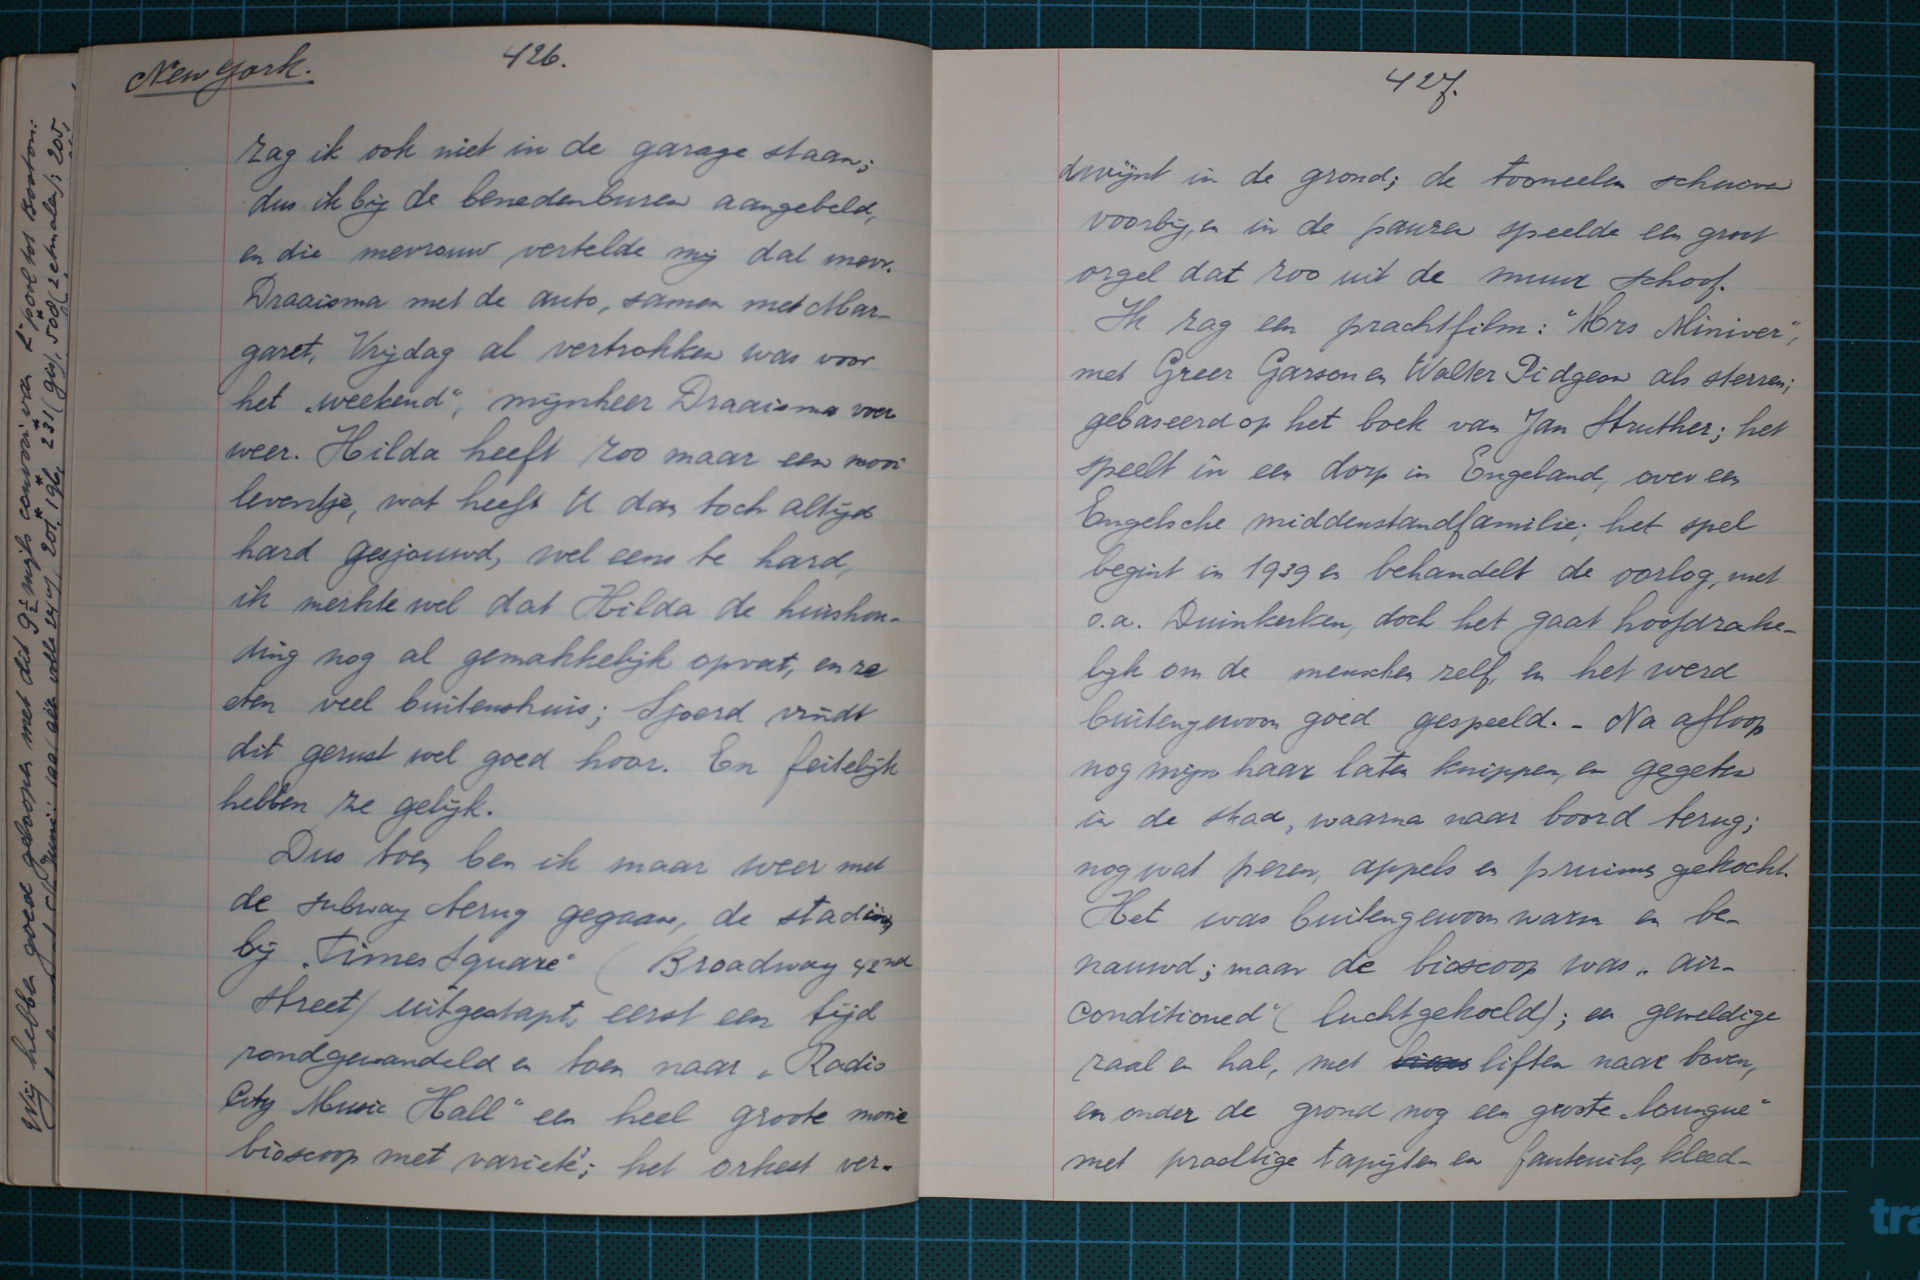 New York.
426.
zag ik ook niet in de garage staan;
dus ik bij de benedenburen aangebeld,
en die mevrouw vertelde mij dat mevr.
Draaisma met de auto, samen met Mar-
garet, Vrijdag al vertrokken was voor
het „weekend", mijnheer Draaisma voer
weer. Hilda heeft zoo maar een mooi
leventje, wat heeft U dan toch altijd
hard gesjouwd, wel eens te hard,
ik merkte wel dat Hilda de huishou-
ding nog al gemakkelijk opvat, en ze
eten veel buitenshuis; Sjoerd vindt
dit gerust wel goed hoor. En feitelijk
hebben ze gelijk.
Dus toen ben ik maar weer met
de subway terug gegaan, de stad in,
bij „Times Square" (Broadway 42nd
Street) uitgestapt, eerst een tijd
rondgewandeld en toen naar „Radio
City Music Hall" een heel groote mooie
bioscoop met varieté; het orkest ver-
427.
dwijnt in de grond; de tooneelen schuiven
voorbij, en in de pauzen speelde een groot
orgel dat zoo uit de muur schoof.
Ik zag een prachtfilm: "Mrs Miniver",
met Greer Garson en Walter Pidgeon als sterren;
gebaseerd op het boek van Jan Struther; het
speelt in een dorp in Engeland, over een
Engelsche middenstandfamilie; het spel
begint in 1939 en behandelt de oorlog, met
o.a. Duinkerken, doch het gaat hoofdzake-
lijk om de menschen zelf, en het werd
buitengewoon goed gespeeld. - Na afloop
nog mijn haar laten knippen, en gegeten
in de stad, waarna naar boord terug;
nog wat peren, appels en pruimen gekocht.
Het was buitengewoon warm en be-
nauwd; maar de bioscoop was „air-
conditioned" (luchtgekoeld); en geweldige
zaal en hal, met liften naar boven,
en onder de grond nog een groote „loungue"
met prachtige tapijten en fauteuils, kleed-
Wij hebben goed geloopen met dit 9½ mijls convooi van L'pool tot Boston: